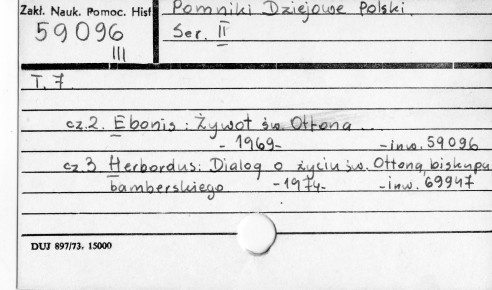 Zakł. Nauk. Pomoc. Hist
Pomniki Dziejowe Polski.
59096
Ser. II
III
T. 7
cz.2. Ebonis: Żywot św. Ottona...
- 1969- -inw. 59096
cz.3 Herbordus: Dialog o życiu św. Ottona, biskupa
bamberskiego -1974- -inw. 69947
DUJ 897/73. 15000